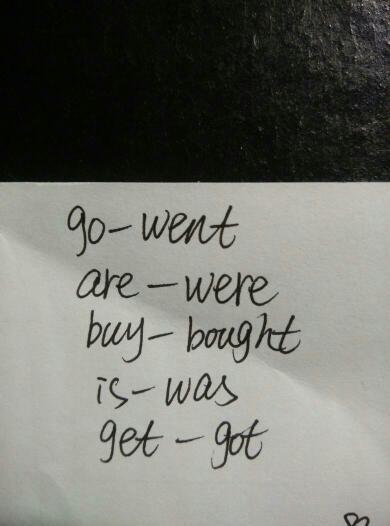 go-went
are-were
buy-bought
is-was
get-got